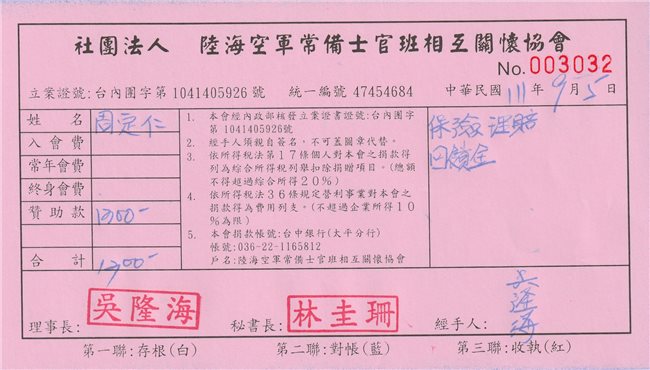 社團法人 陸海空軍常備士官班相互關懷協會
No. 003032
立業證號:台內團字第 1041405926 號 統一編號 47454684 中華民國 111 年 9 月 5 日
姓名 周定仁
入會費
常年會費
終身會費
贊助款
合計
1. 本會經內政部核發立業證書證號:台內團字第 1041405926號
2. 經手人須親自簽名,不可蓋圖章代替。
3. 依所得稅法第17條個人對本會之捐款得列為綜合所得稅列舉扣除捐贈項目。(總額不得超過綜合所得20%)
4. 依所得稅法36條規定營利事業對本會之捐款得為費用列支。(不超過企業所得10%為限)
5. 本會捐款帳號:台中銀行(太平分行)
帳號:036-22-1165812
戶名:陸海空軍常備士官班相互關懷協會
保險理賠
回饋金
理事長: 吳隆海 秘書長: 林圭珊 經手人:
第一聯:存根(白) 第二聯:對帳(藍) 第三聯:收執(紅)